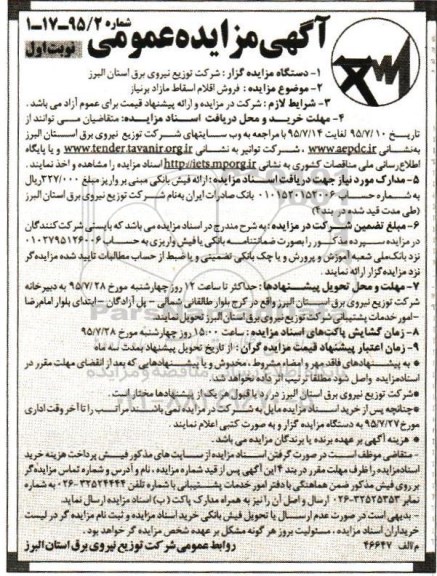 آگهی مزایده عمومی شماره ۹۵/۲-۱۷-۱
نوبت اول
۱- دستگاه مزایده گزار : شرکت توزیع نیروی برق استان البرز
۲- موضوع مزایده : فروش اقلام اسقاط مازاد برنیاز
۳- شرایط لازم : شرکت در مزایده و ارائه پیشنهاد قیمت برای عموم آزاد می باشد .
۴- مهلت خرید و محل دریافت اسناد مزایده: متقاضیان می توانند از
تاریخ ۹۵/۷/۱۰ لغایت ۹۵/۷/۱۴ با مراجعه به وب سایتهای شرکت توزیع نیروی برق استان البرز
به نشانی www.aepdc.ir ، شرکت توانیر به نشانی www.tender.tavanir.org.ir و یا پایگاه
اطلاع رسانی ملی مناقصات کشوری به نشانی http://iets.mporg.ir اسناد مزایده را مشاهده و اخذ نمایند .
۵- مدارک مورد نیاز جهت دریافت اسناد مزایده : ارائه فیش بانکی مبنی بر واریز مبلغ ۳۲۷/۰۰۰ ریال
به شماره حساب ۰۱۰۱۵۲۰۱۵۲۰۰۶ بانک صادرات ایران به نام شرکت توزیع نیروی برق استان البرز
(طی مدت قید شده در بند ۴)
۶- مبلغ تضمین شرکت در مزایده : به شرح مندرج در اسناد مزایده می باشد که بایستی شرکت کنندگان
در مزایده سپرده مذکور را بصورت ضمانتنامه بانکی یا فیش واریزی به حساب ۰۱۰۲۷۹۵۱۲۶۰۰۶
نزد بانک ملی شعبه آموزش و پرورش و یا چک بانکی تضمینی و یا ضبط از حساب مطالبات تایید شده مزایده گر
نزد مزایده گزار ارائه نمایند .
۷- مهلت و محل تحویل پیشنهادها: حداکثر تا ساعت ۱۲ روز چهارشنبه مورخ ۹۵/۷/۲۸ به دبیرخانه
شرکت توزیع نیروی برق استان البرز واقع در کرج بلوار طالقانی شمالی - پل آزادگان - ابتدای بلوار امام رضا
- امور خدمات پشتیبانی شرکت توزیع نیروی برق استان البرز تحویل نمایند .
۸- زمان گشایش پاکت های اسناد مزایده : ساعت ۱۵:۰۰ روز چهارشنبه مورخ ۹۵/۷/۲۸
۹- زمان اعتبار پیشنهاد قیمت مزایده گران : از تاریخ تحویل پیشنهاد بمدت سه ماه
* به پیشنهادهای فاقد مهر و امضاء، مشروط ، مخدوش و یا پیشنهادهایی که بعد از انقضای مهلت مقرر در
اسناد مزایده واصل شود مطلقاً ترتیب اثر داده نخواهد شد.
* شرکت توزیع نیروی برق استان البرز در رد یا قبول هر یک از پیشنهادها مختار است .
* چنانچه پس از خرید اسناد مزایده مایل به شرکت در مزایده نمی باشند مراتب را تا آخر وقت اداری
مورخ ۹۵/۷/۲۷ به دستگاه مزایده گزار و به صورت کتبی اعلام نمایند .
* هزینه آگهی بر عهده برنده یا برندگان مزایده می باشد.
- متقاضی موظف است در صورت گرفتن اسناد مزایده از سایت های مذکور فیش پرداخت هزینه خرید
اسناد مزایده را ظرف مهلت مقرر در بند ۴ این آگهی پس از قید شماره مزایده ، نام و آدرس و شماره تماس مزایده گر
بر روی فیش مذکور ضمن هماهنگی با دفتر امور خدمات پشتیبانی با شماره تلفن ۳۲۵۲۴۴۴۴-۰۲۶ به
نمابر ۳۲۵۲۵۳۵۳-۰۲۶ ارسال و اصل آن را نیز به همراه مدارک پاکت (ب) اسناد مزایده ارسال نماید.
- بدیهی است در صورت عدم ارسال یا تحویل فیش بانکی خرید اسناد مزایده و ثبت نام مزایده گر در لیست
خریداران اسناد مزایده ، مسئولیت بروز هر گونه مشکل بر عهده شخص مزایده گر خواهد بود.
م/الف ۴۶۶۴۷ روابط عمومی شرکت توزیع نیروی برق استان البرز